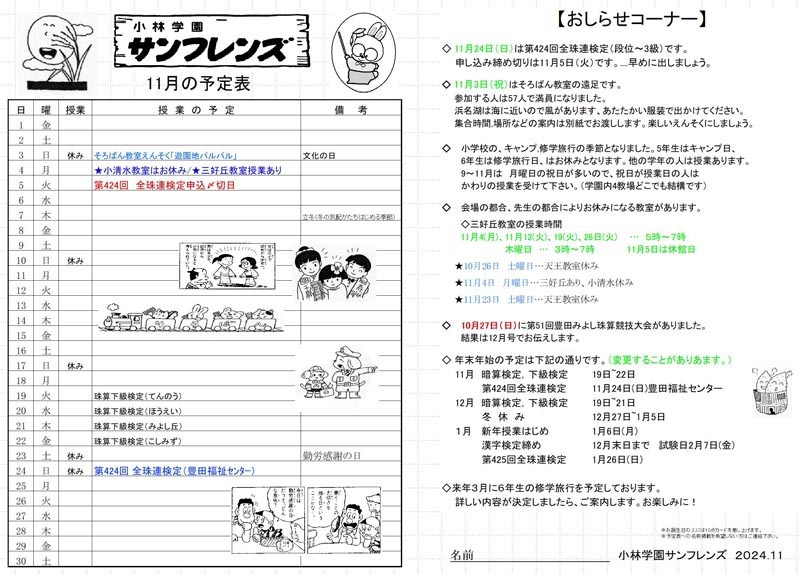 小林学園
サンフレンズ
11月の予定表
日 曜 授業 授業の予定 備考
1 金
2 土
3 日 休み そろばん教室えんそく「遊園地パルパル」 文化の日
4 月 ★小清水教室はお休み/★三好丘教室授業あり
5 火 第424回 全珠連検定申込〆切日
6 水
7 木 立冬(冬の気配がたちはじめる季節)
8 金
9 土
10 日 休み
11 月
12 火
13 水
14 木
15 金
16 土
17 日 休み
18 月
19 火 珠算下級検定(てんのう)
20 水 珠算下級検定(ほうえい)
21 木 珠算下級検定(みよし丘)
22 金 珠算下級検定(こしみず)
23 土 休み 勤労感謝の日
24 日 休み 第424回 全珠連検定(豊田福祉センター)
25 月
26 火
27 水
28 木
29 金
30 土
【おしらせコーナー】
◇ 11月24日(日)は第424回全珠連検定(段位〜3級)です。
申し込み締め切りは11月5日(火)です。……早めに出しましょう。
◇ 11月3日(祝)はそろばん教室の遠足です。
参加する人は57人で満員になりました。
浜名湖は海に近いので風があります、あたたかい服装で出かけてください。
集合時間,場所などの案内は別紙でお渡しします。楽しいえんそくにしましょう。
◇ 小学校の、キャンプ,修学旅行の季節となりました。5年生はキャンプ日、
6年生は修学旅行日、はお休みとなります。他の学年の人は授業あります。
9〜11月は 月曜日の祝日が多いので、祝日が授業日の人は
かわりの授業を受けて下さい。(学園内4教場どこでも結構です)
◇ 会場の都合、先生の都合によりお休みになる教室があります。
◇三好丘教室の授業時間
11月4(月)、11月12(火)、19(火)、26日(火) … 5時〜7時
木曜日 … 3時〜7時 11月5日は休館日
★10月26日 土曜日…天王教室休み
★11月4日 月曜日…三好丘あり、小清水休み
★11月23日 土曜日…天王教室休み
◇ 10月27日(日)に第51回豊田みよし珠算競技大会がありました。
結果は12月号でお伝えします。
◇ 年末年始の予定は下記の通りです。(変更することがありあます。)
11月 暗算検定,下級検定 19日~22日
第424回全珠連検定 11月24日(日)豊田福祉センター
12月 暗算検定,下級検定 19日~21日
冬休み 12月27日~1月5日
1月 新年授業はじめ 1月6日(月)
漢字検定締め 12月末日まで 試験日2月7日(金)
第425回全珠連検定 1月26日(日)
◇来年3月に6年生の修学旅行を予定しております。
詳しい内容が決定しましたら、ご案内します。お楽しみに!
※お誕生日の人には10点カードを差し上げます。
※予定表への名前掲載を希望しない方はご連絡下さい。
名前 小林学園サンフレンズ 2024.11